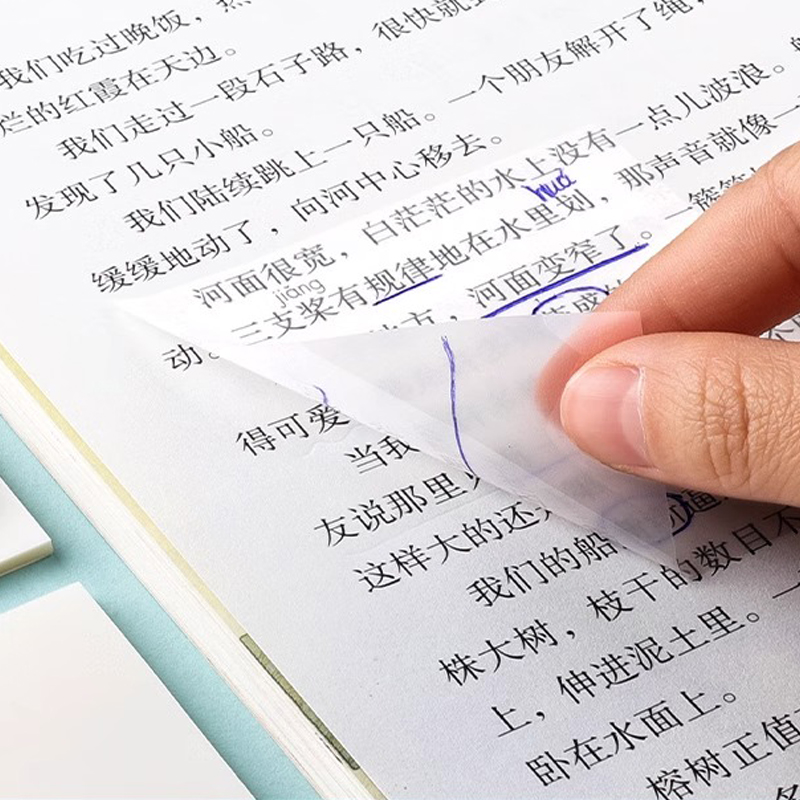 我们吃过晚饭，热
烂的红霞在天边。
我们走过一段石子路，很快就
发现了几只小船。
我们陆续跳上一只船。一个朋友解开了绳，
缓缓地动了，向河中心移去。
河面很宽，白茫茫的水上没有一点儿波浪。
huá
jiāng
三支桨有规律地在水里划，那声音就像一
动。
方，河面变窄了。一簇簇
得可爱
当我
友说那里
这样大的还
我们的船 逼
株大树，枝干的数目不
上，伸进泥土里。一
卧在水面上。
榕树正值